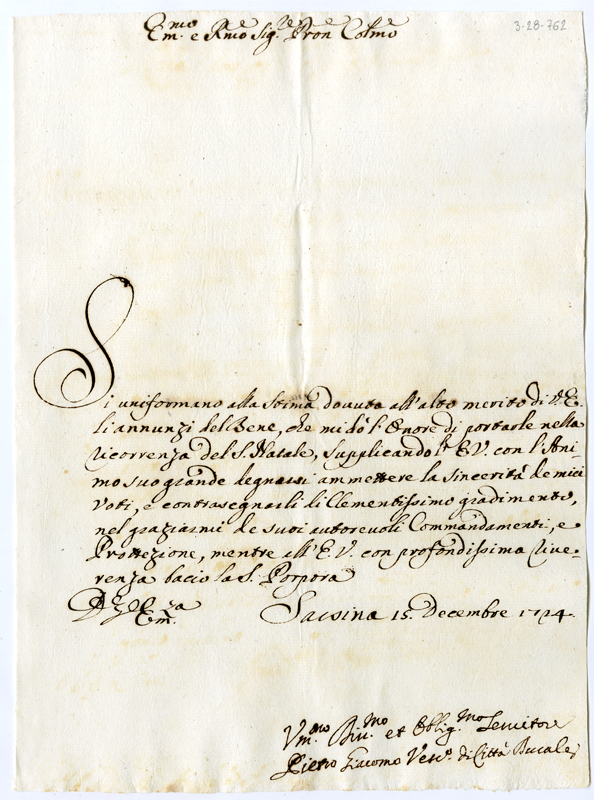 3-28-762
Em.mo e Rmo Sig.re Pron Colmo
Si uniformano alla Stima dovuta all'alto merito di V. E.
li annunzi del Bene, che mi dò l'Onore di portarle nella
ricorrenza del S. Natale, supplicando l'E.V. con l'Ani-
mo suo grande degnarsi ammettere la sincerità de miei
Voti, e contrasegnarli di Clementissimo gradimento,
nel graziarmi de suoi autorevoli Commandamenti, e
Protezione, mentre all'E.V. con profondissima Rive-
renza bacio la S. Porpora
Em.za
Sarsina 15. Decembre 1724.
Vm.mo Div.mo et Oblig.mo Servitore
Pietro Giacomo Vesc.o di Città Ducale